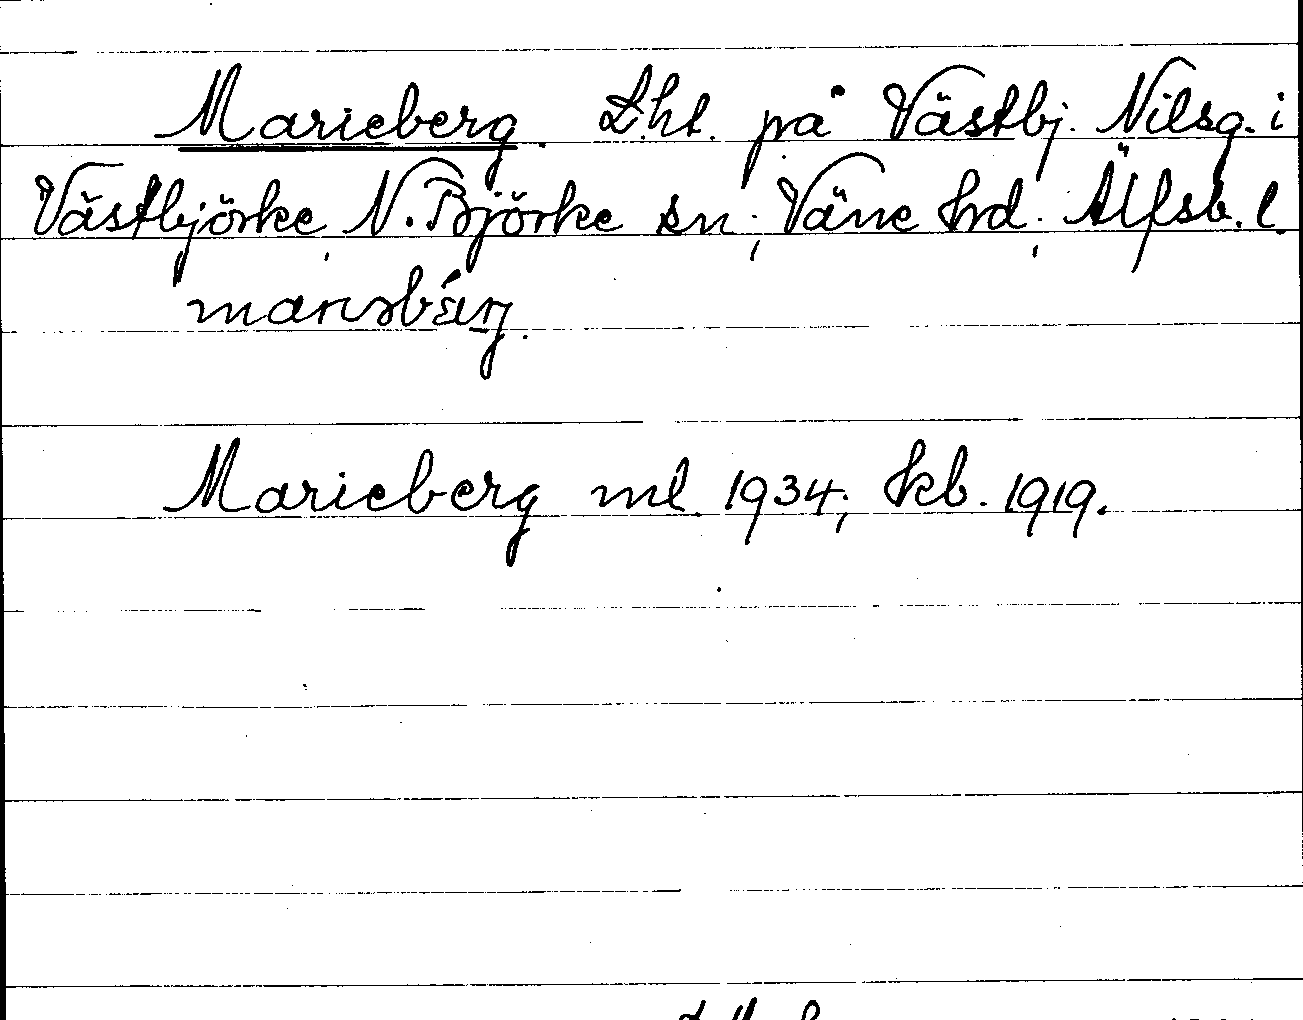 Marieberg. Lht. på Västbj. Nilsg. i
Västbjörke, N. Björke sn; Väne hrd; Älfsb. l.
Marieberg ml. 1934; kb. 1919.